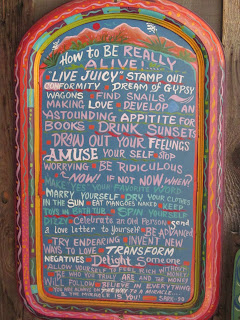 HOW to BE REALLY
ALIVE!
LIVE JUICY STAMP OUT
CONFORMITY DREAM OF GYPSY
WAGONS FIND SNAILS
MAKING LOVE DEVELOP AN
ASTOUNDING APPITITE FOR
BOOKS DRINK SUNSETS
DRAW OUT YOUR FEELINGS
AMUSE YOUR SELF STOP
WORRYING BE RIDICULOUS
NOW! IF NOT NOW WHEN?
MAKE YES! YOUR FAVORITE WORD
MARRY YOURSELF DRY YOUR CLOTHES
IN THE SUN EAT MANGOES NAKED KEEP
TOYS IN BATH TUB SPIN YOURSELF
DIZZY Celebrate an Old Person Send
a love letter to Yourself BE ADVANCED
TRY ENDEARING INVENT NEW
WAYS TO LOVE TRANSFORM
NEGATIVES Delight Someone
ALLOW YOURSELF TO FEEL RICH WITHOUT
BE WHO YOU TRULY ARE AND THE MONEY
WILL FOLLOW BELIEVE IN EVERYTHING
YOU ARE ALWAYS ON THE WAY TO A MIRACLE
THE MIRACLE IS YOU! SARK